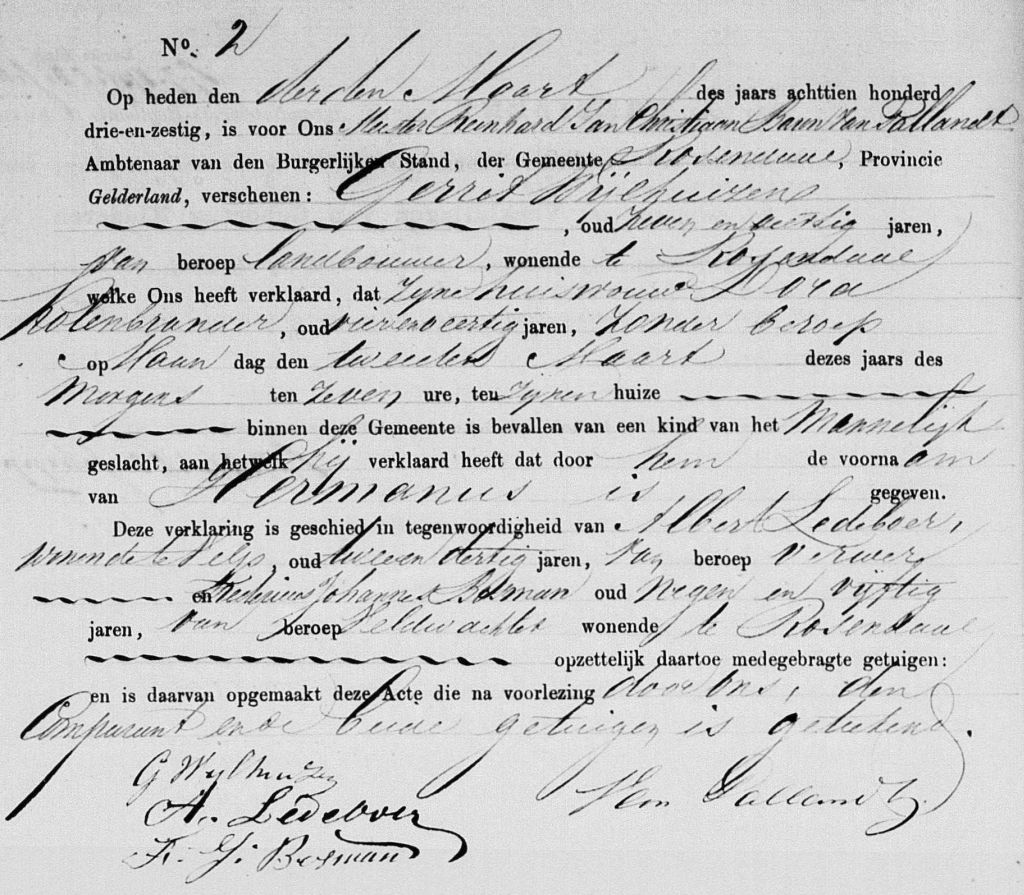 No. 2
Op heden den derden Maart des jaars achttien honderd
drie-en-zestig, is voor Ons Meester Reinhard Jan Christiaan Baron Van Pallandt
Ambtenaar van den Burgerlijken Stand, der Gemeente Rosendaal, Provincie
Gelderland, verschenen: Gerrit Wijlhuizen
, oud zeven en veertig jaren,
van beroep landbouwer, wonende te Rozendaal
welke Ons heeft verklaard, dat zyne huisvrouw Dora
Kolenbrander, oud vierenveertig jaren, zonder beroep
op Maan dag den tweeden Maart dezes jaars des
Morgens ten zeven ure, ten zynen huize
binnen deze Gemeente is bevallen van een kind van het Mannelijk
geslacht, aan hetwelk hij verklaard heeft dat door hem de voorna am
van Hermanus is gegeven.
Deze verklaring is geschied in tegenwoordigheid van Albert Ledeboer,
wonende te Velp, oud twee en dertig jaren, van beroep verwer
en Johannes Bosman oud negen en vijftig
jaren, van beroep Veldwachter wonende te Rosendaal
opzettelijk daartoe medegebragte getuigen:
en is daarvan opgemaakt deze Acte die na voorlezing door ons, den
Comparant en de beide getuigen is getekend.
G Wylhuizen
A. Ledeboer
Van Pallandt
F. J. Bosman